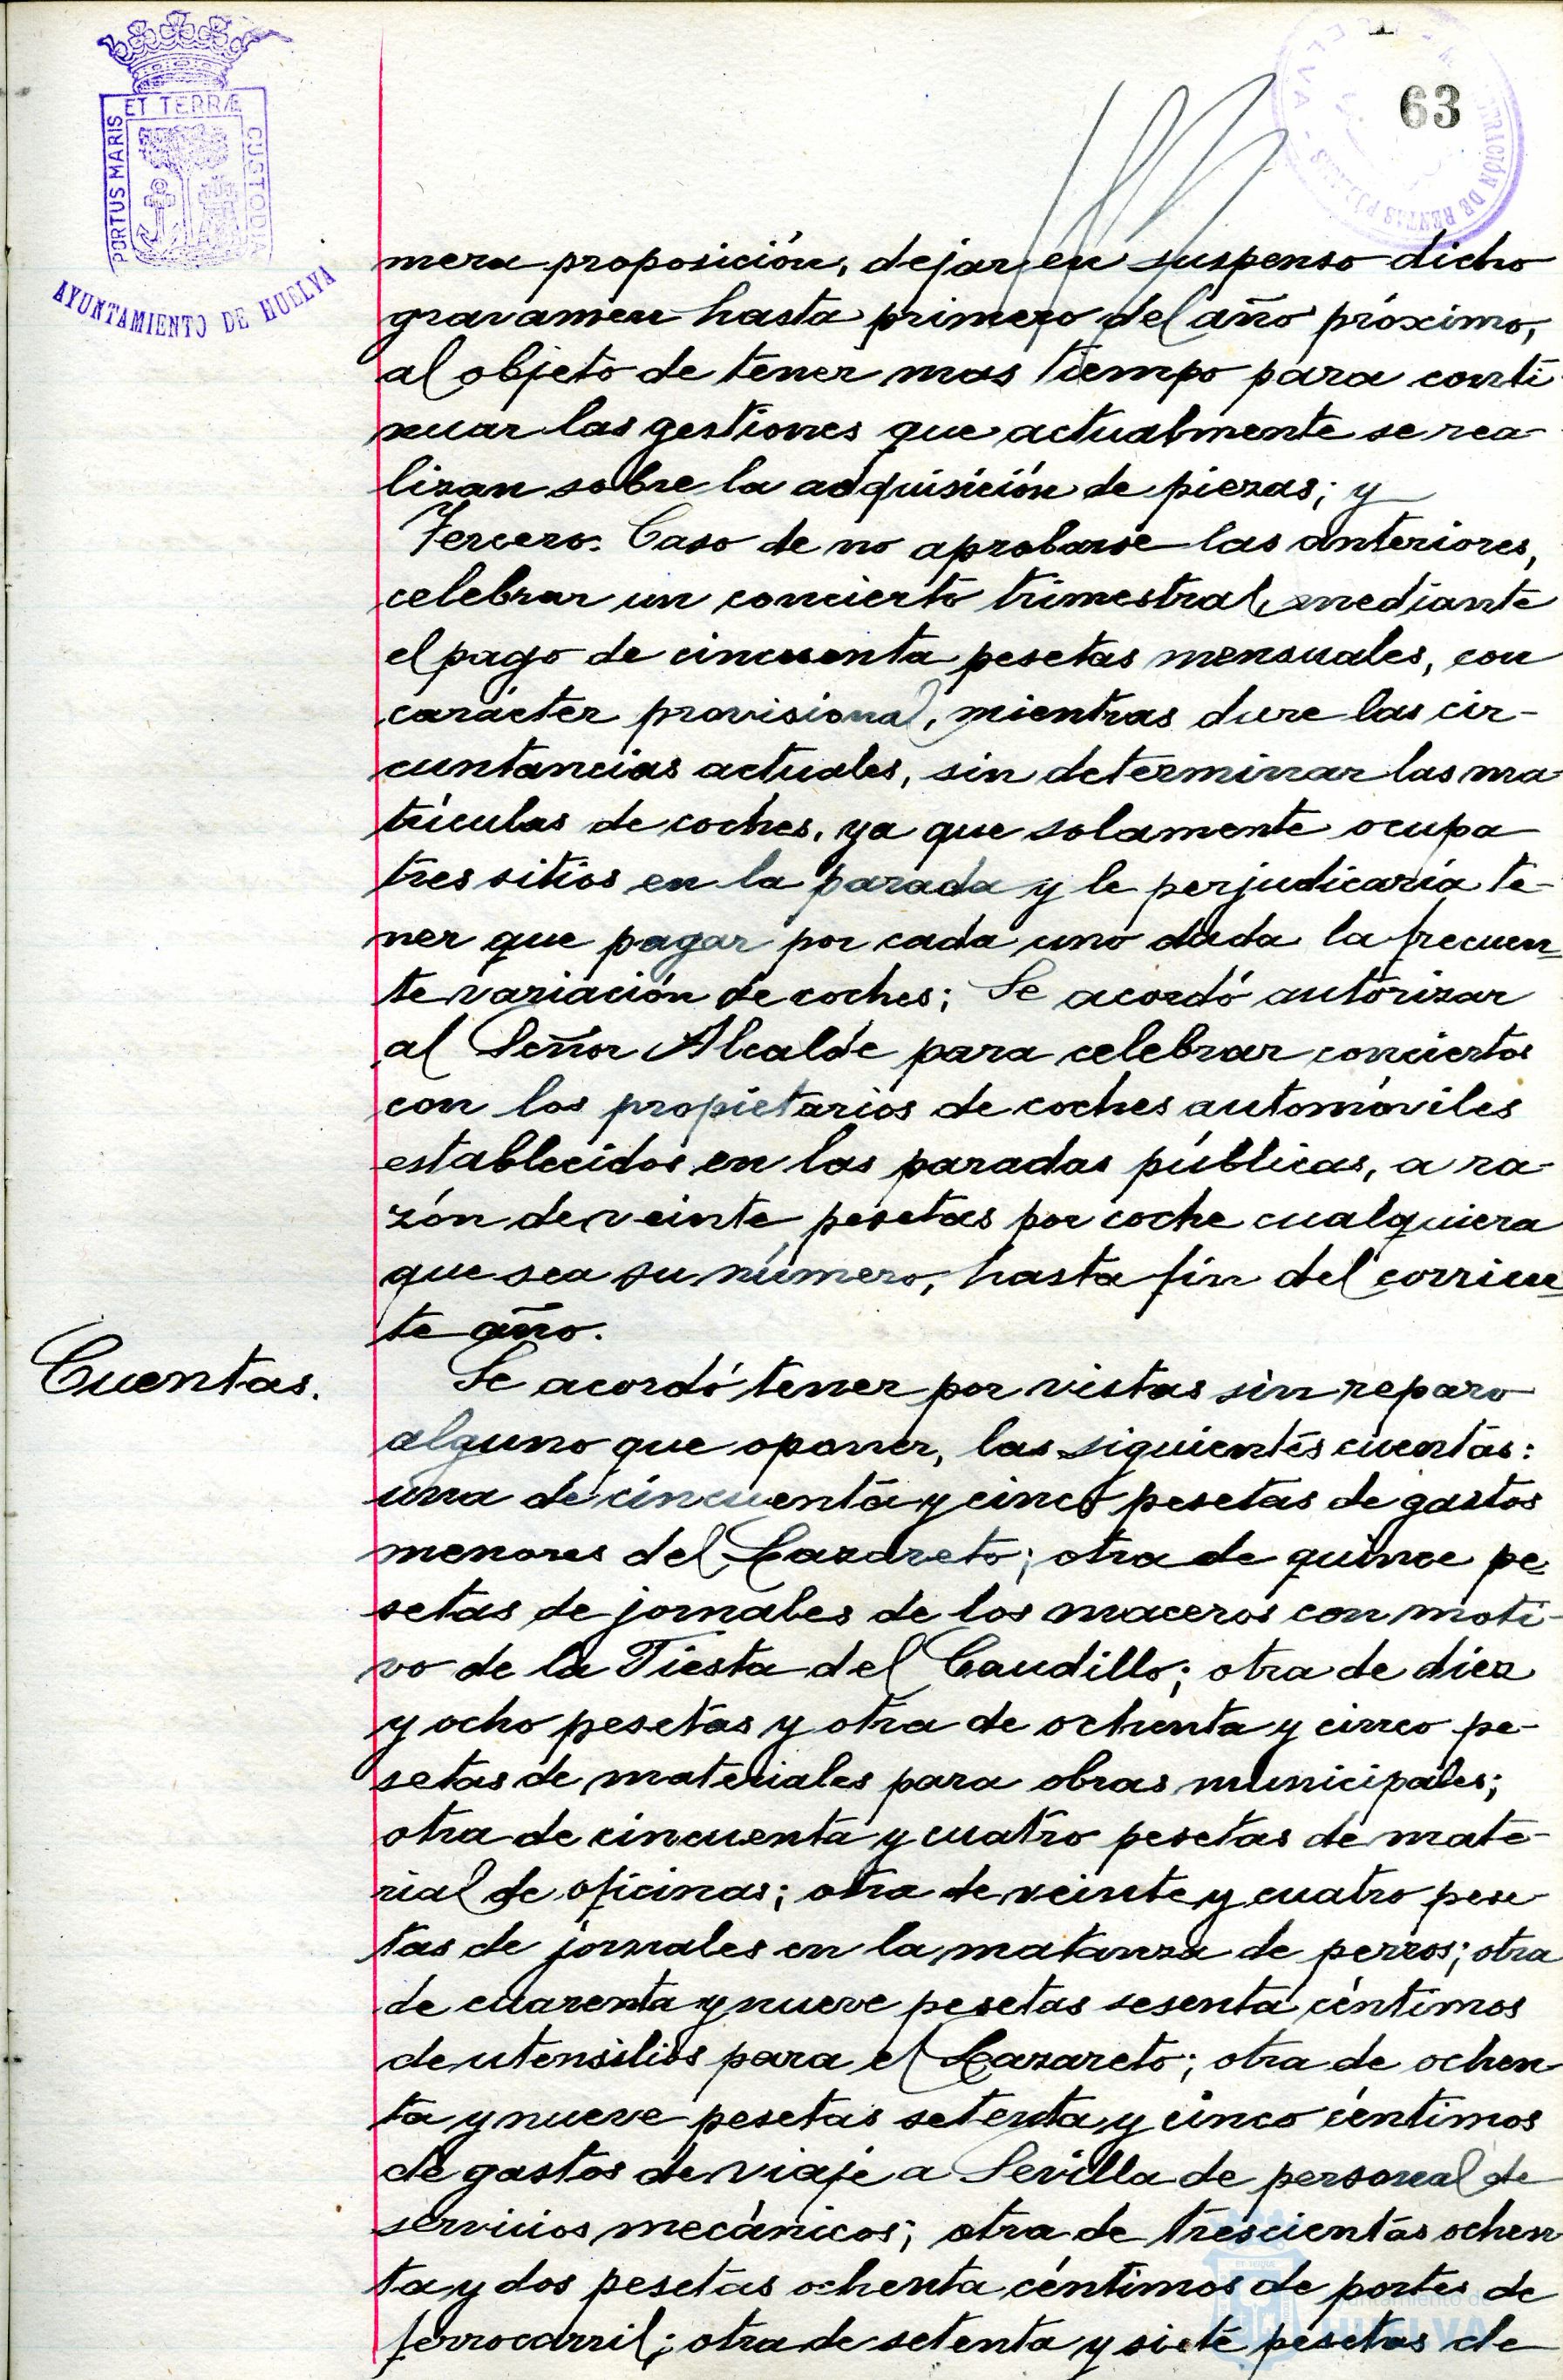 ET TERRÆ
PORTUS MARIS
CUSTODIA
AYUNTAMIENTO DE HUELVA
63
mera proposición, dejar en suspenso dicho
gravamen hasta primero del año próximo,
al objeto de tener mas tiempo para conti-
nuar las gestiones que actualmente se rea-
lizan sobre la adquisición de piezas; y
Tercero. Caso de no aprobarse las anteriores,
celebrar un concierto trimestral, mediante
el pago de cincuenta pesetas mensuales, con
carácter provisional, mientras dure las cir-
cuntancias actuales, sin determinar las ma-
triculas de coches, ya que solamente ocupa
tres sitios en la parada y le perjudicaría te-
ner que pagar por cada uno dada la frecuen-
te variación de coches; Se acordó autorizar
al Señor Alcalde para celebrar conciertos
con los propietarios de coches automóviles
establecidos en las paradas públicas, a ra-
zón de veinte pesetas por coche cualquiera
que sea su número, hasta fin del corrien-
te año.
Cuentas.
Se acordó tener por vistas sin reparo
alguno que oponer, las siguientes cuentas:
una de cincuenta y cinco pesetas de gastos
menores del Lazareto; otra de quince pe-
setas de jornales de los maceros con moti-
vo de la Fiesta del Caudillo; otra de diez
y ocho pesetas y otra de ochenta y cinco pe-
setas de materiales para obras municipales;
otra de cincuenta y cuatro pesetas de mate-
rial de oficinas; otra de veinte y cuatro pese-
tas de jornales en la matanza de perros; otra
de cuarenta y nueve pesetas sesenta céntimos
de utensilios para el Lazareto; otra de ochen-
ta y nueve pesetas setenta y cinco céntimos
de gastos de viaje a Sevilla de personal de
servicios mecánicos; otra de trescientas ochen-
ta y dos pesetas ochenta céntimos de portes de
ferrocarril; otra de setenta y siete pesetas de
Ayuntamiento de
HUELVA